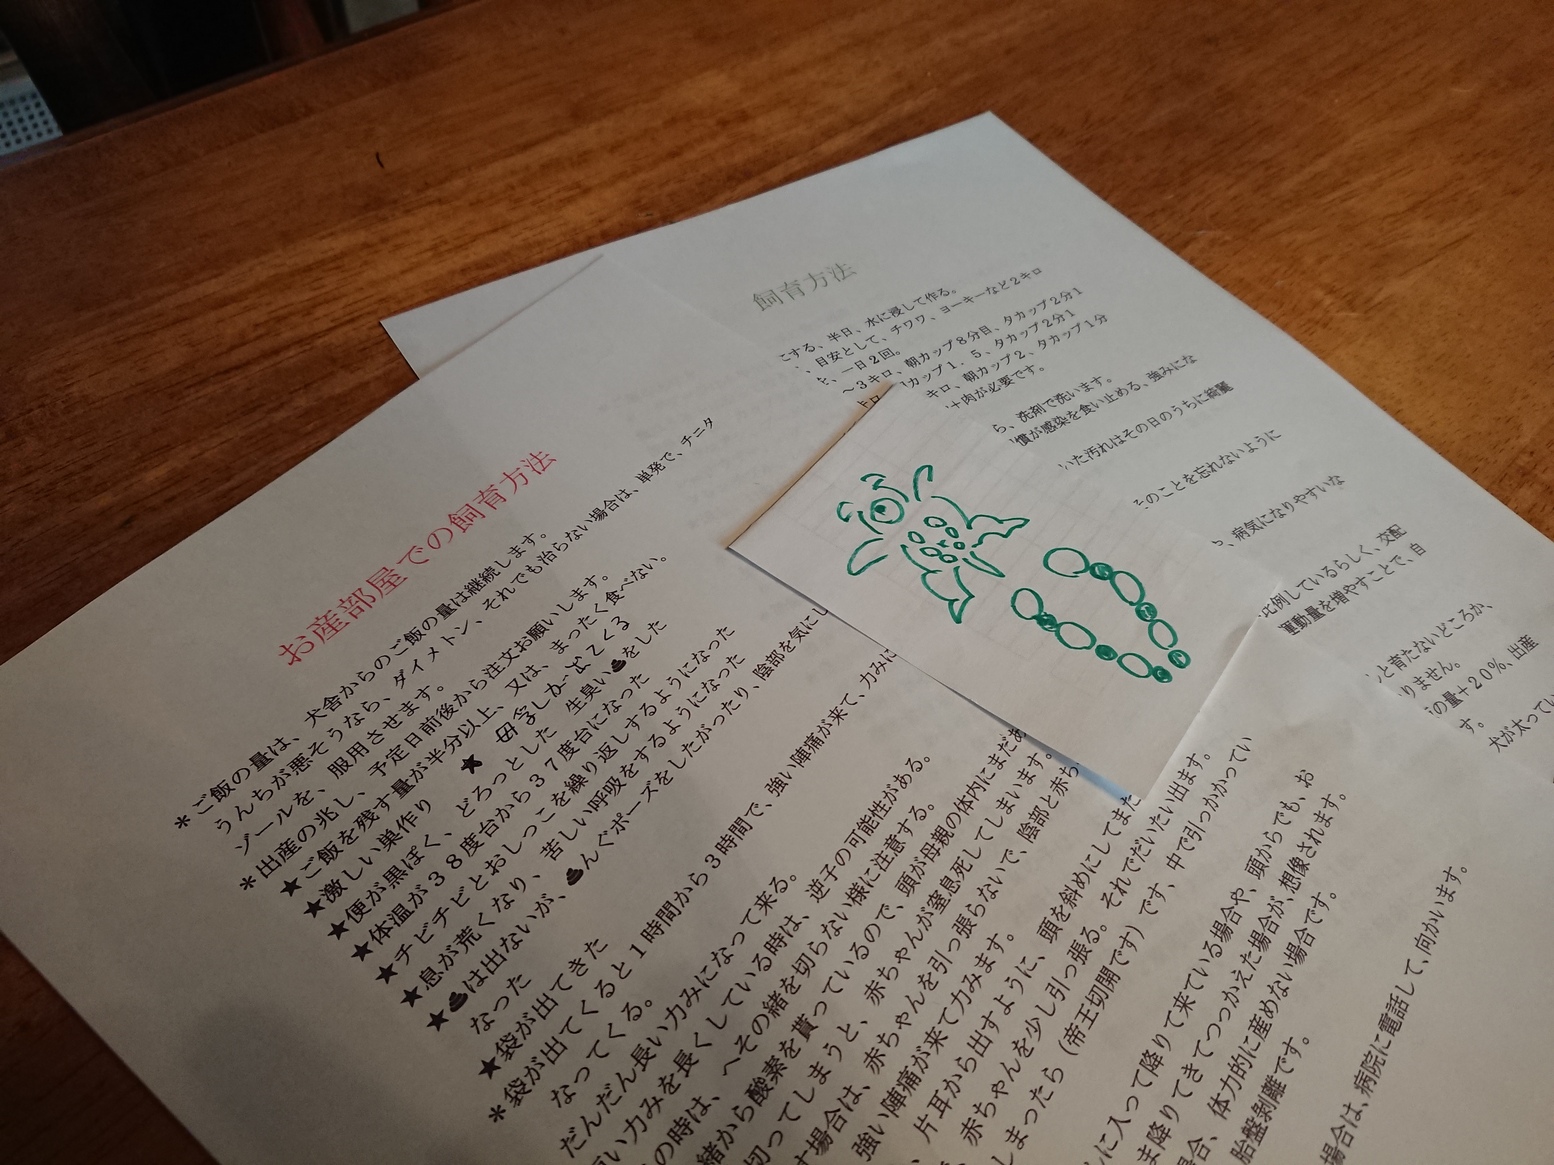 お産部屋での飼育方法
*ご飯の量は、犬舎からのご飯の量は継続します。
うんちが悪そうなら、ダイメトン、それでも治らない場合は、単発で、チニダ
ゾールを、服用させます。
*出産の兆し、予定日前後から注文お願いします。
★ご飯を残す量が半分以上、又は、まったく食べない。
★激しい巣作り ★
★便が黒ぽく、どろっとした 生臭い💩をした
★体温が38度台から37度台になった
★チビチビとおしっこを繰り返しするようになった
★息が荒くなり、苦しい呼吸をするようになった
★💩は出ないが、💩んぐポーズをしたがったり、陰部を気にし
なった
★袋が出てきた
*袋が出てくると1時間から3時間で、強い陣痛が来て、力みに
なってくる。
だんだん長い力みになって来る。
い力みを長くしている時は、逆子の可能性がある。
の時は、へその緒を切らない様に注意する。
緒から酸素を貰っているので、頭が母親の体内にまだあ
切ってしまうと、赤ちゃんが窒息死してしまいます。
す場合は、赤ちゃんを引っ張らないで、陰部と赤ち
強い陣痛が来て力みます。
片耳から出すように、頭を斜めにしてまた
赤ちゃんを少し引っ張る。それでだいたい出ます。
まったら（帝王切開です）です、中で引っかかってい
に入って降りて来ている場合や、頭からでも、お
ま降りてきてつっかえた場合が、想像されます。
場合、体力的に産めない場合です。
胎盤剥離です。
場合は、病院に電話して、向かいます。
飼育方法
にする、半日、水に浸して作る。
、目安として、チワワ、ヨーキーなど2キロ
と、一日2回。
～3キロ、朝カップ8分目、タカップ2分1
カップ1、5、タカップ2分1
キロ、朝カップ2、タカップ1分
肉が必要です。
ら、洗剤で洗います。
慣が感染を食い止める、強みにな
いた汚れはその日のうちに綺麗
そのことを忘れないように
、病気になりやすいな
比例しているらしく、交配
運動量を増やすことで、自
と育たないどころか、
りません。
の量+20%、出産
す。
犬が太ってい